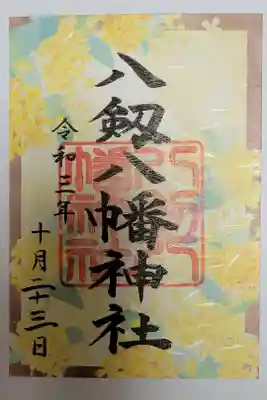 八剱八幡神社
令和三年
十月二十三日